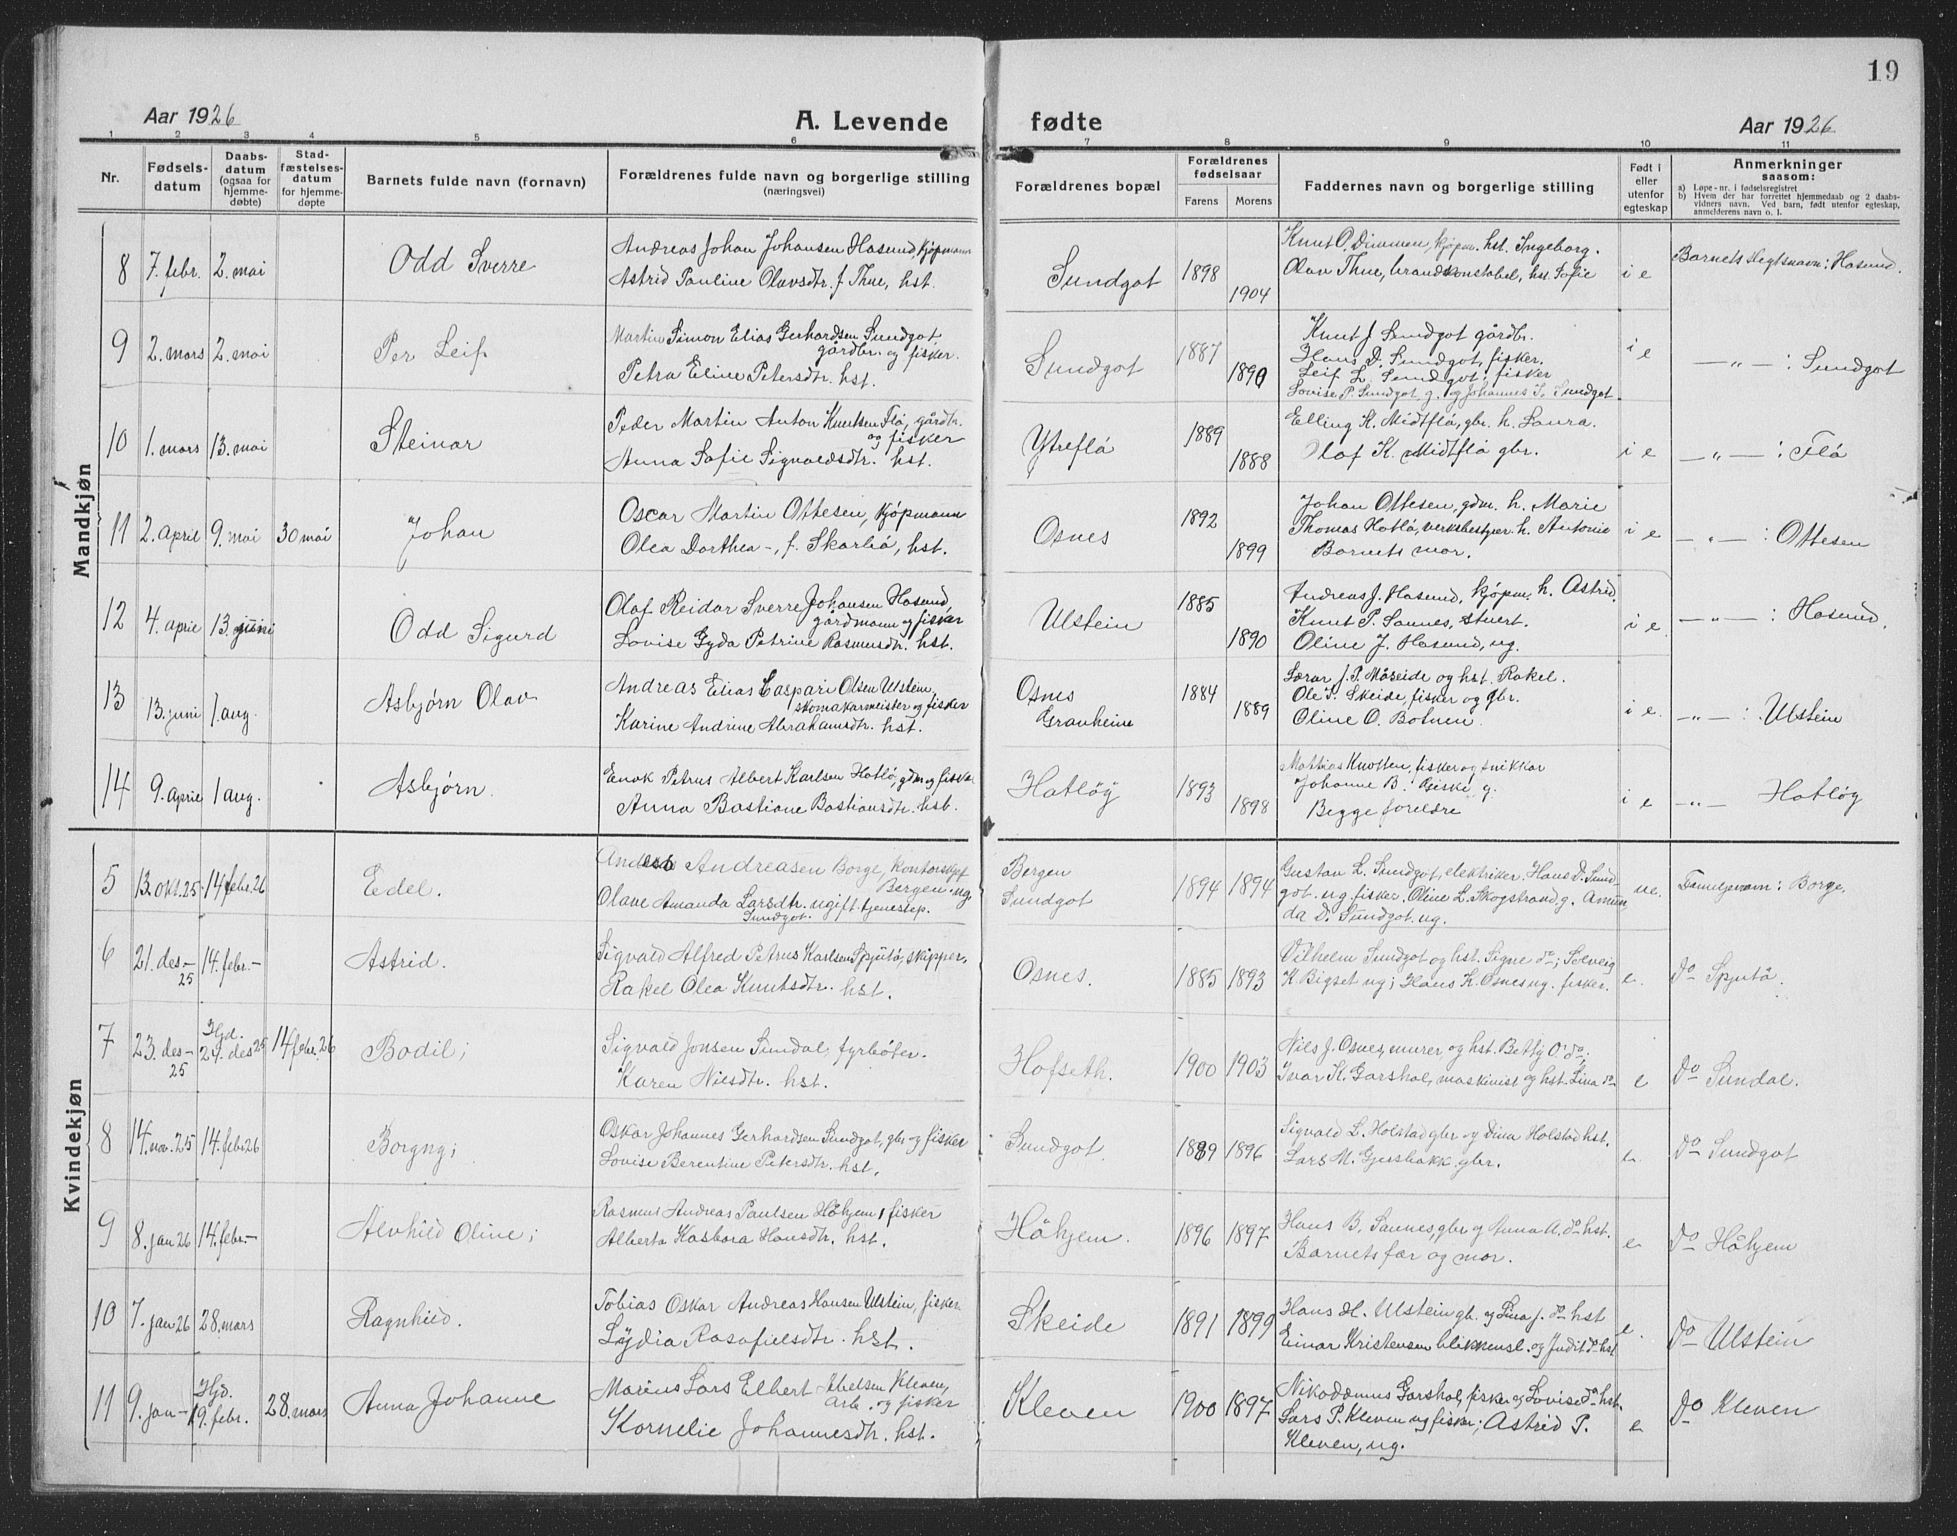 19
Aar 1926 A. Levende fødte Aar 1926
1 2 3 4 5 6 7 8 9 10 11
Nr. Fødsels-datum Daabs-datum (ogsaa for hjemme-døbte) Stad-fæstelses-datum for hjemme-døpte Barnets fulde navn (fornavn) Forældrenes fulde navn og borgerlige stilling (næringsvei) Forældrenes bopæl Forældrenes fødselsaar Farens Morens Faddernes navn og borgerlige stilling Født i eller utenfor egteskap Anmerkninger saasom:
a) Løpe-nr. i fødselsregistret
b) Hvem der har forrettet hjemmedaab og 2 daabs-
vidners navn. Ved barn, født utenfor egteskap,
anmelderens navn o. l.
Mandkjøn
8 7. febr. 2. mai Odd Sverre
Andreas Johan Johansen Hasund, kjøpmann
Astrid Pauline Olavsdtr. f Thue, hst.
Sundgot 1898 1904
Knut O. Dimmen, kjøpm. hst. Ingeborg.
Olav Thue, brandkonstabel, hst. Sofie
i e Barnets slegtsnavn: Hasund.
9 2. mars 2. mai Per Leif
Martin Simon Elias Gerhardsen Sundgot,
gårdbr. og fisker.
Petra Eline Petersdtr. hst.
Sundgot 1887 1890
Knut J. Sundgot gårdbr.
Hans D. Sundgot, fisker.
Leif L. Sundgot, fisker
Lovise P. Sundgot g. og Johannes S. Sundgot.
i e —„— : Sundgot
10 1. mars 13. mai Steinar
Peder Martin Anton Knutsen Flø, gårdbr.
og fisker
Anna Sofie Sigvaldsdtr. hst.
Ytreflå 1889 1888
Elling K. Midtflå, gbr. h. Laura.
Olaf K. Midtflå gbr.
i e —„— : Flå
11 2. april 9. mai 30 mai Johan
Oscar Martin Ottesen, kjøpmann
Olea Dorthea -, f. Skarbö, hst.
Osnes 1892 1899
Johan Ottesen, gdm. h. Marie
Thomas Hatlö, verksbestyrer. h. Antonie
Barnets mor.
i e —„— : Ottesen
12 4. april 13. juni Odd Sigurd
Olaf Reidar Sverre Johansen Hasund,
gårdmann og fisker
Lovise Gyda Petrine Rasmusdtr. hst.
Ulstein 1885 1890
Andreas J. Hasund, kjøpm. h. Astrid.
Knut P. Sannes, stuert.
Oline J. Hasund, ug.
i e. —„— : Hasund.
13 13. juni 1 aug. Asbjørn Olav
Andreas Elias Caspari Olsen Ulstein,
skomakarmeister og fisker
Karine Andrine Abrahamsdtr. hst.
Osnes
Granheim 1884 1889
Lærar J. P. Måseide og hst. Rakel.
Ole S. Skeide, fisker og gbr.
Oline O. Botnen.
i e. —„— : Ulstein
14 9. april 1 aug. Asbjørn.
Enok Petrus Albert Karlsen Hatlö, gdm og fisker
Anna Bastiane Bastiansdtr. hst.
Hatløy 1893 1898
Mattias Knotten, fisker og snikkar
Johanne B. Giske g.
Begge foreldre
i e —„— Hatløy
Kvindekjøn
5 13. okt. 25 14 febr. 26 Edel.
Andreasen Borge, Kontorskjef
Bergen. ug.
Olave Amanda Larsdtr. ugift. tjenestep.
Sundgot.
Bergen
Sundgot 1894 1894
Gustav L. Sundgot, elektriker. Hans D. Sund-
got. ug. fisker. Oline L. Skogstrand g. Amun-
da D. Sundgot. ug.
ue. Familjenavn: Borge.
6 21. des. – 25 14. febr. – Astrid.
Sigvald Alfred Petrus Karlsen Spjutö, skipper.
Rakel Olea Knutsdtr. hst.
Osnes. 1885 1893
Vilhelm Sundgot og hst. Signe do; Solveig
K. Bigset ug; Hans K. Osnes ug. fisker.
e. do Spjutå.
7 23. des – 25 Hjd. 24. des 25 14 febr. 26 Bodil;
Sigvald Jonsen Sundal, fyrböter.
Karen Nilsdtr. hst.
Hofseth. 1900 1903
Nils J. Osnes, murer og hst. Betty O. do;
Ivar K. Garshol, maskinist og hst. Lina do
e do Sundal.
8 14. nov. 25 14. febr 26 Borgny;
Oskar Johannes Gerhardsen Sundgot, gbr og fisker
Lovise Berentine Petersdtr. hst.
Sundgot. 1889 1896
Sigvald L. Holstad gbr og Dina Holstad hst.
Lars M. Gjersbakk gbr.
e. do Sundgot
9 8. jan 26 14. febr. – Alvhild Oline;
Rasmus Andreas Paulsen Håhjem, fisker
Alberta Kasbora Hansdtr. hst.
Håhjem. 1896 1897
Hans B. Sannes, gbr og Anna A. do hst.
Barnets far og mor.
e do Håhjem
10 7. jan 26 28. mars Ragnhild.
Tobias Oskar Andreas Hansen Ulstein, fisker
Lydia Rasafielsdtr. hst.
Skeide 1891 1899
Hans H. Ulstein gb. og Lina J. do hst
Einar Kristensen blikkensl. og Judit do hst
e. do Ulstein
11 9. jan – Hjd. 19. febr. 28. mars Anna Johanne
Marius Lars Elbert Abelsen Kleven,
arb. og fisker
Kornelie Johannesdtr. hst.
Kleven 1900 1897
Nikodemus Garshol, fisker og Lovise do hst.
Lars P. Kleven ug fisker; Astrid P.
Kleven, ug.
e do Kleven